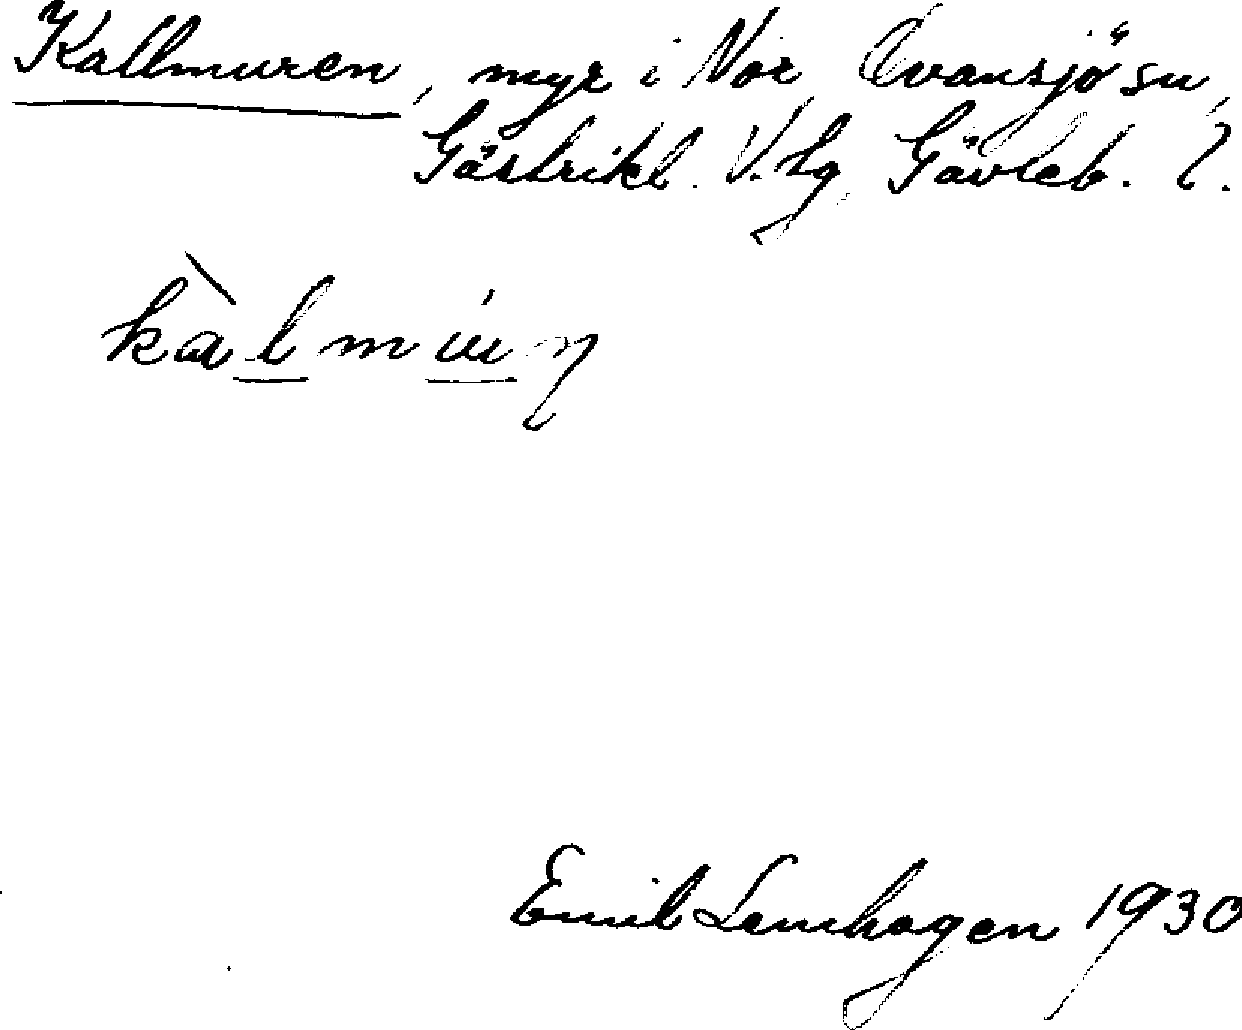 Kallmuren, myr i Nor, Ovansjö sn,
Gästrikl. V. tg. Gävleb. l.
kàlmúıŋ
Emil Lemhagen 1930